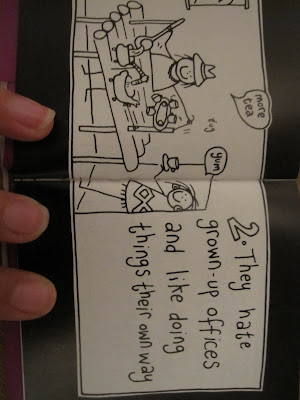 more
tea
yum
2. They hate
grown-up offices
and like doing
things their own way